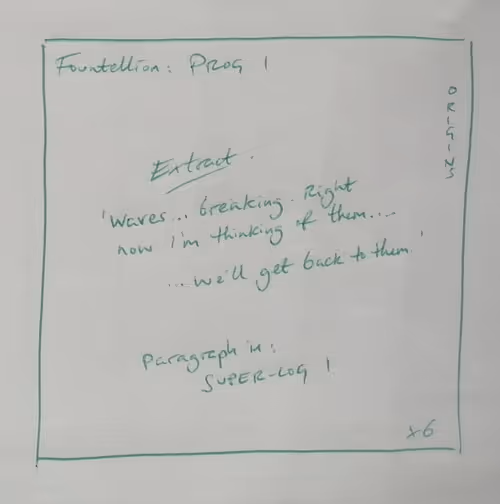 Fountellion: PROG 1
ORIGINS
Extract.
'Waves... breaking. Right
now I'm thinking of them....
...we'll get back to them.'
Paragraph in:
SUPER-LOG 1
x6